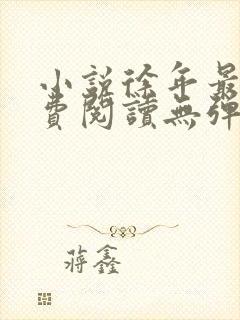 小說徐年最
費閱讀無彈
蔣鑫